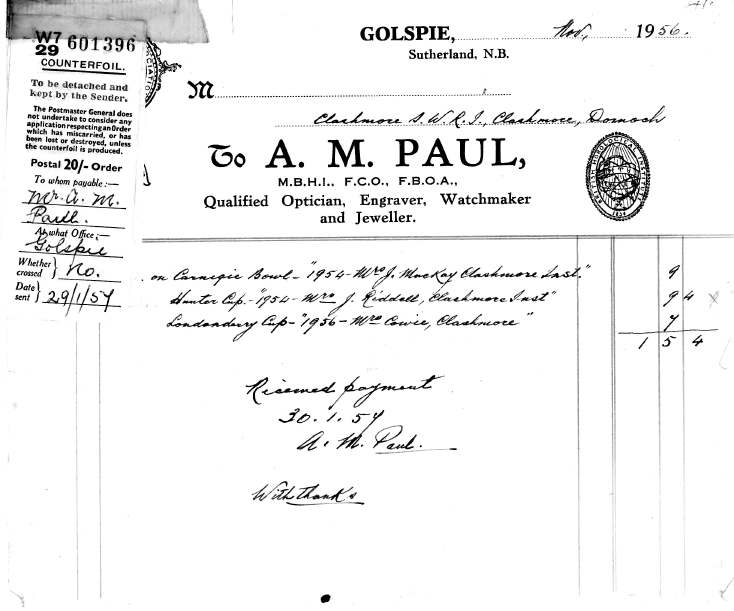 W7 601396
29
COUNTERFOIL.
To be detached and
kept by the Sender.
The Postmaster General does
not undertake to consider any
application respecting an Order
which has miscarried, or has
been lost or destroyed, unless
the counterfoil is produced.
Postal 20/- Order
To whom payable:—
Mr. A. M.
Paul.
At what Office:—
Golspie
Whether
crossed } No.
Date
sent } 29/1/57
GOLSPIE, Nov. 1956.
Sutherland, N.B.
M
Clashmore S.W.R.I., Clashmore, Dornoch
To A. M. PAUL,
M.B.H.I., F.C.O., F.B.O.A.,
Qualified Optician, Engraver, Watchmaker
and Jeweller.
BRITISH HOROLOGICAL INSTITUTE
1858
on Carnegie Bowl - "1954 - Mrs J. MacKay Clashmore Inst." 9
Hunter Cup - "1954 - Mrs J. Riddell, Clashmore Inst" 9 4 x
Londonderry Cup - "1956 - Mrs Cowie, Clashmore" 7
1 5 4
Received payment
30.1.57
A. M. Paul.
With thanks